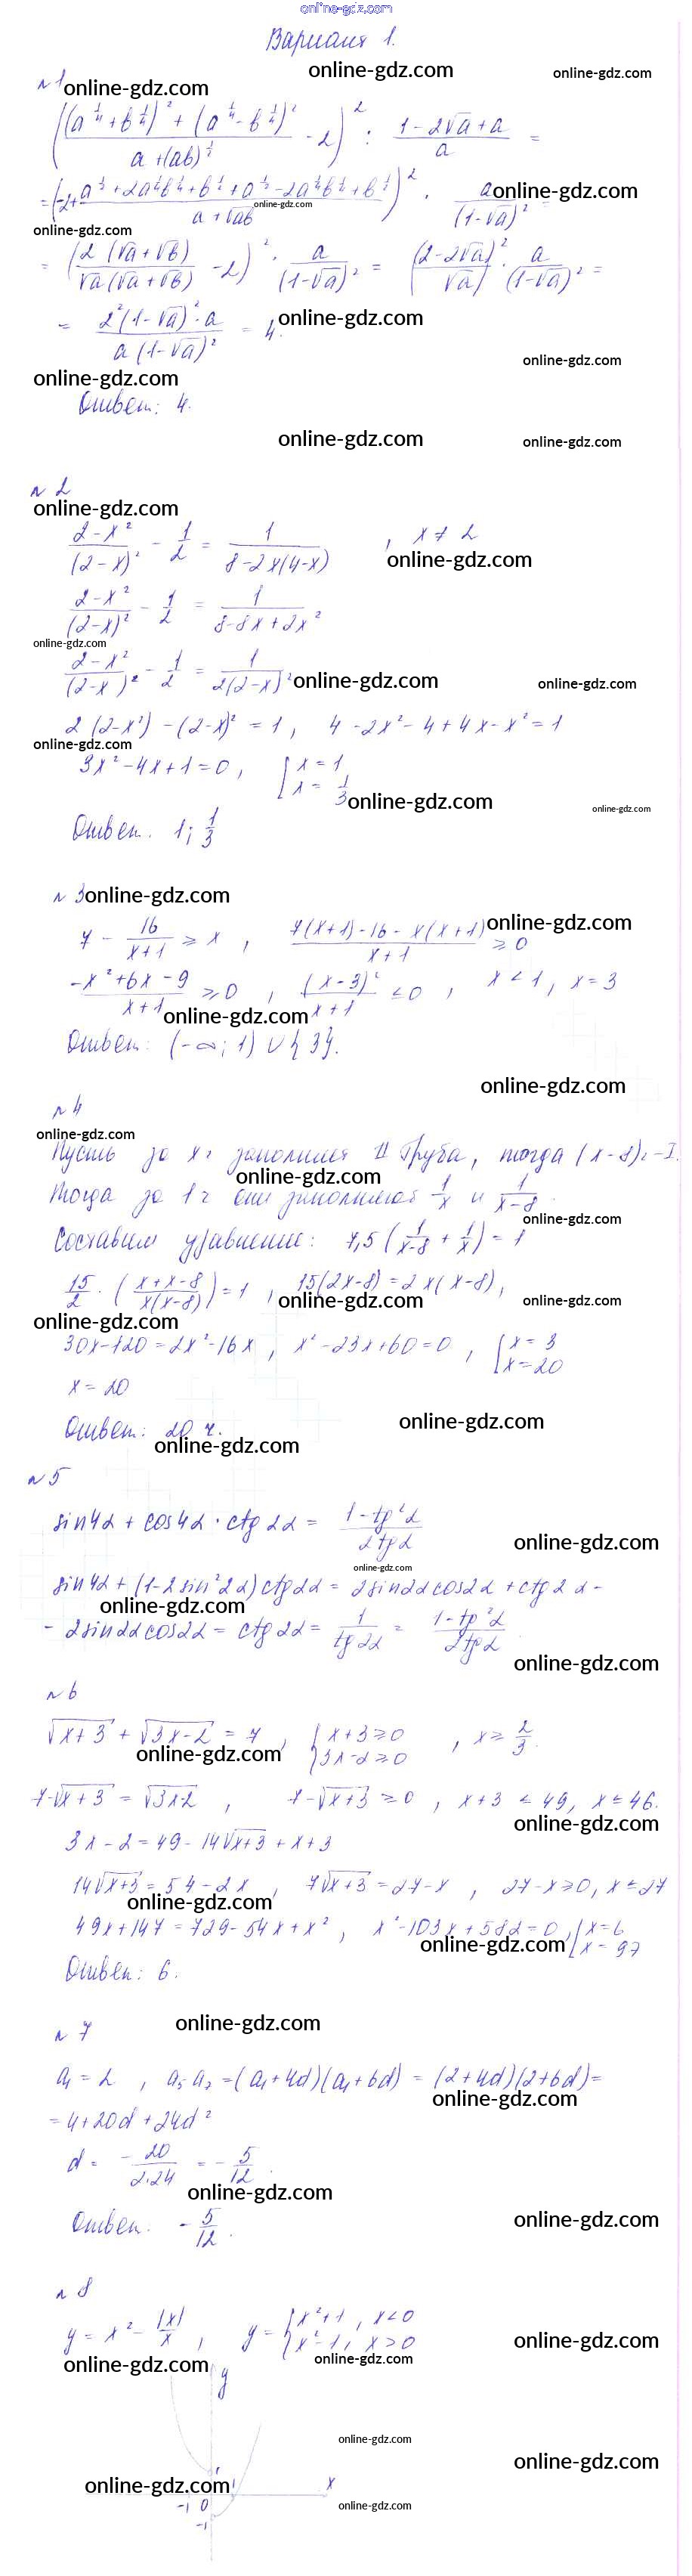 online-gdz.com
Вариант 1.
online-gdz.com
online-gdz.com
№1
online-gdz.com
(((a^{1/4} + b^{1/4})^2 + (a^{1/4} - b^{1/4})^2)/(a + (ab)^{1/2}) - 2)^2 : (1 - 2√a + a)/a =
= (-2 + (a^{1/2} + 2a^{1/4}b^{1/4} + b^{1/2} + a^{1/2} - 2a^{1/4}b^{1/4} + b^{1/2})/(a + √ab))^2 · a/(1-√a)^2 =
online-gdz.com
online-gdz.com
online-gdz.com
= (2(√a + √b)/(√a(√a + √b)) - 2)^2 · a/(1-√a)^2 = ((2-2√a)/√a)^2 · a/(1-√a)^2 =
= 2^2(1-√a)^2·a/(a(1-√a)^2) = 4.
online-gdz.com
online-gdz.com
online-gdz.com
Ответ: 4.
online-gdz.com
online-gdz.com
№ 2
online-gdz.com
(2-x^2)/(2-x)^2 - 1/2 = 1/(8-2x(4-x)) , x ≠ 2
online-gdz.com
(2-x^2)/(2-x)^2 - 1/2 = 1/(8-8x+2x^2)
online-gdz.com
(2-x^2)/(2-x)^2 - 1/2 = 1/(2(2-x)^2)
online-gdz.com
online-gdz.com
2(2-x^2) - (2-x)^2 = 1, 4-2x^2-4+4x-x^2=1
online-gdz.com
3x^2-4x+1=0, [x=1
x=1/3
online-gdz.com
online-gdz.com
Ответ. 1; 1/3
№ 3
online-gdz.com
7 - 16/(x+1) ≥ x , (7(x+1)-16-x(x+1))/(x+1) ≥ 0
online-gdz.com
(-x^2+6x-9)/(x+1) ≥ 0 , (x-3)^2/(x+1) ≤ 0 , x < 1, x = 3
online-gdz.com
Ответ: (-∞; 1) ∪ {3}.
online-gdz.com
№4
online-gdz.com
Пусть за x ч заполнит II труба, тогда (x-8)ч - I.
online-gdz.com
Тогда за 1 ч они заполняют 1/x и 1/(x-8).
online-gdz.com
Составим уравнение: 7,5(1/(x-8) + 1/x) = 1
15/2 · ((x+x-8)/(x(x-8))) = 1 , 15(2x-8) = 2x(x-8),
online-gdz.com
online-gdz.com
online-gdz.com
30x-120=2x^2-16x , x^2-23x+60=0 , [x=3
x=20
x = 20
online-gdz.com
Ответ: 20 ч.
online-gdz.com
№5
sin4α + cos4α · ctg2α = (1-tg^2α)/(2tgα)
online-gdz.com
online-gdz.com
sin4α + (1-2sin^2 2α)ctg2α = 2sin2αcos2α + ctg2α -
online-gdz.com
- 2sin2αcos2α = ctg2α = 1/tg2α = (1-tg^2α)/(2tgα).
online-gdz.com
№6
√(x+3) + √(3x-2) = 7 , {x+3≥0
3x-2≥0 , x ≥ 2/3.
online-gdz.com
7-√(x+3) = √(3x-2) , 7-√(x+3) ≥ 0 , x+3 ≤ 49, x ≤ 46.
online-gdz.com
3x-2=49-14√(x+3)+x+3
14√(x+3)=54-2x , 7√(x+3)=27-x , 27-x≥0, x≤27
online-gdz.com
49x+147=729-54x+x^2 , x^2-103x+582=0, [x=6
x=97
online-gdz.com
Ответ: 6.
online-gdz.com
№ 7
a₁ = 2 , a₅a₇=(a₁+4d)(a₁+6d) = (2+4d)(2+6d)=
online-gdz.com
= 4+20d+24d^2
d = -20/(2·24) = -5/12.
online-gdz.com
online-gdz.com
Ответ. -5/12.
№ 8
y = x^2 - |x|/x , y = {x^2+1, x<0
x^2-1, x>0
online-gdz.com
online-gdz.com
online-gdz.com
y
online-gdz.com
online-gdz.com
1
1
x
online-gdz.com
-1 0
online-gdz.com
-1